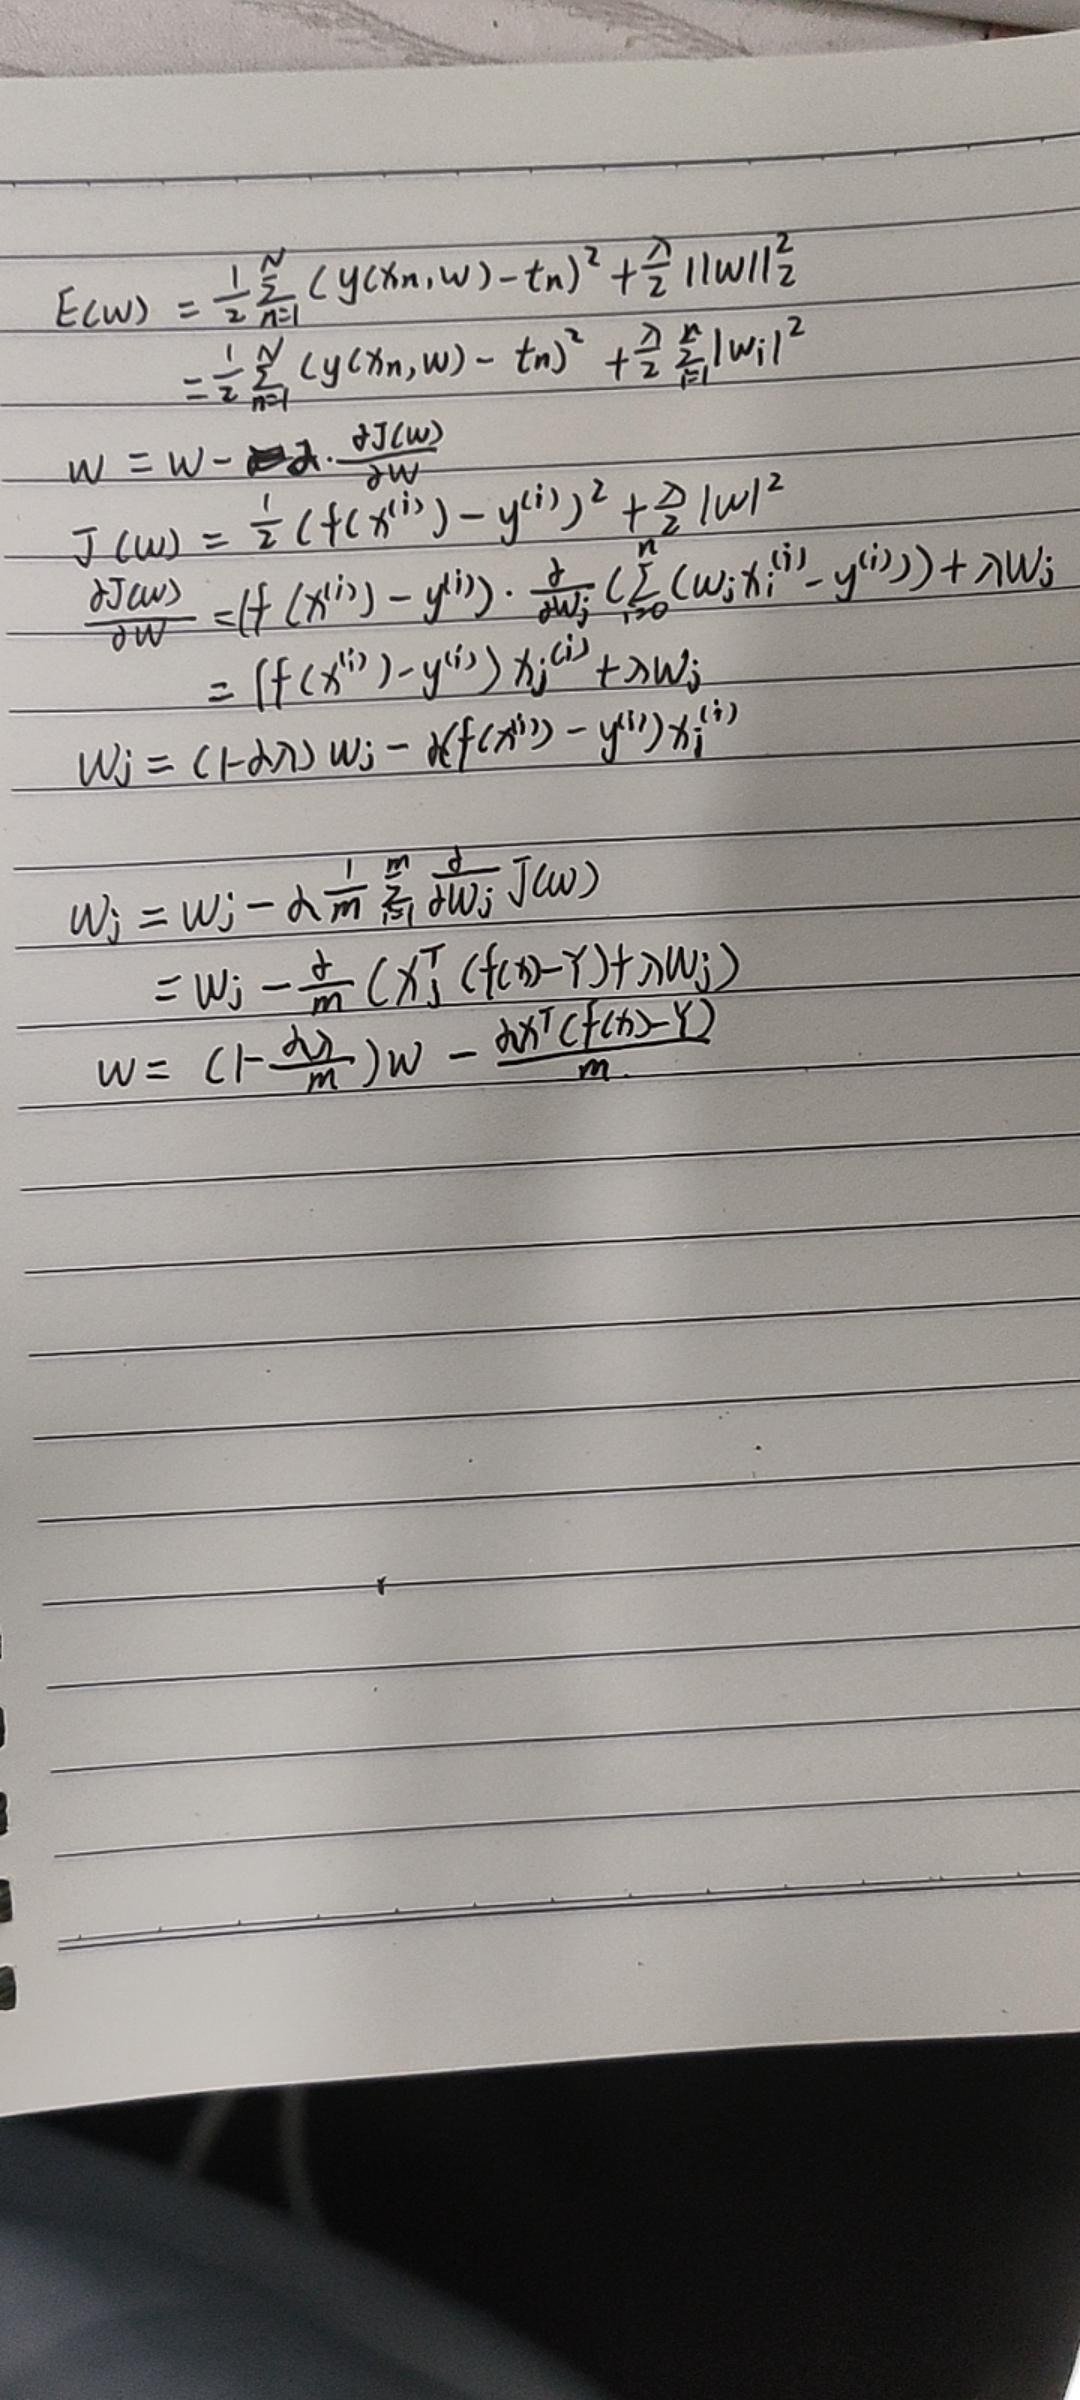 E(w) = 1/2 Σ_{n=1}^{N} (y(xn, w) - tn)² + λ/2 ||w||₂²
= 1/2 Σ_{n=1}^{N} (y(xn, w) - tn)² + λ/2 Σ_{i=1}^{n} |wi|²
w = w - α · ∂J(w)/∂w
J(w) = 1/2 (f(x⁽ⁱ⁾) - y⁽ⁱ⁾)² + λ/2 |w|²
∂J(w)/∂w = (f(x⁽ⁱ⁾) - y⁽ⁱ⁾) · ∂/∂wj (Σ_{i=0}^{n} (wj xi⁽ⁱ⁾ - y⁽ⁱ⁾)) + λwj
= (f(x⁽ⁱ⁾) - y⁽ⁱ⁾) xj⁽ⁱ⁾ + λwj
wj = (1-αλ) wj - α(f(x⁽ⁱ⁾) - y⁽ⁱ⁾) xj⁽ⁱ⁾
wj = wj - α 1/m Σ_{i=1}^{m} ∂/∂wj J(w)
= wj - α/m (xjᵀ (f(x) - Y) + λwj)
w = (1 - αλ/m) w - αxᵀ(f(x) - Y)/m